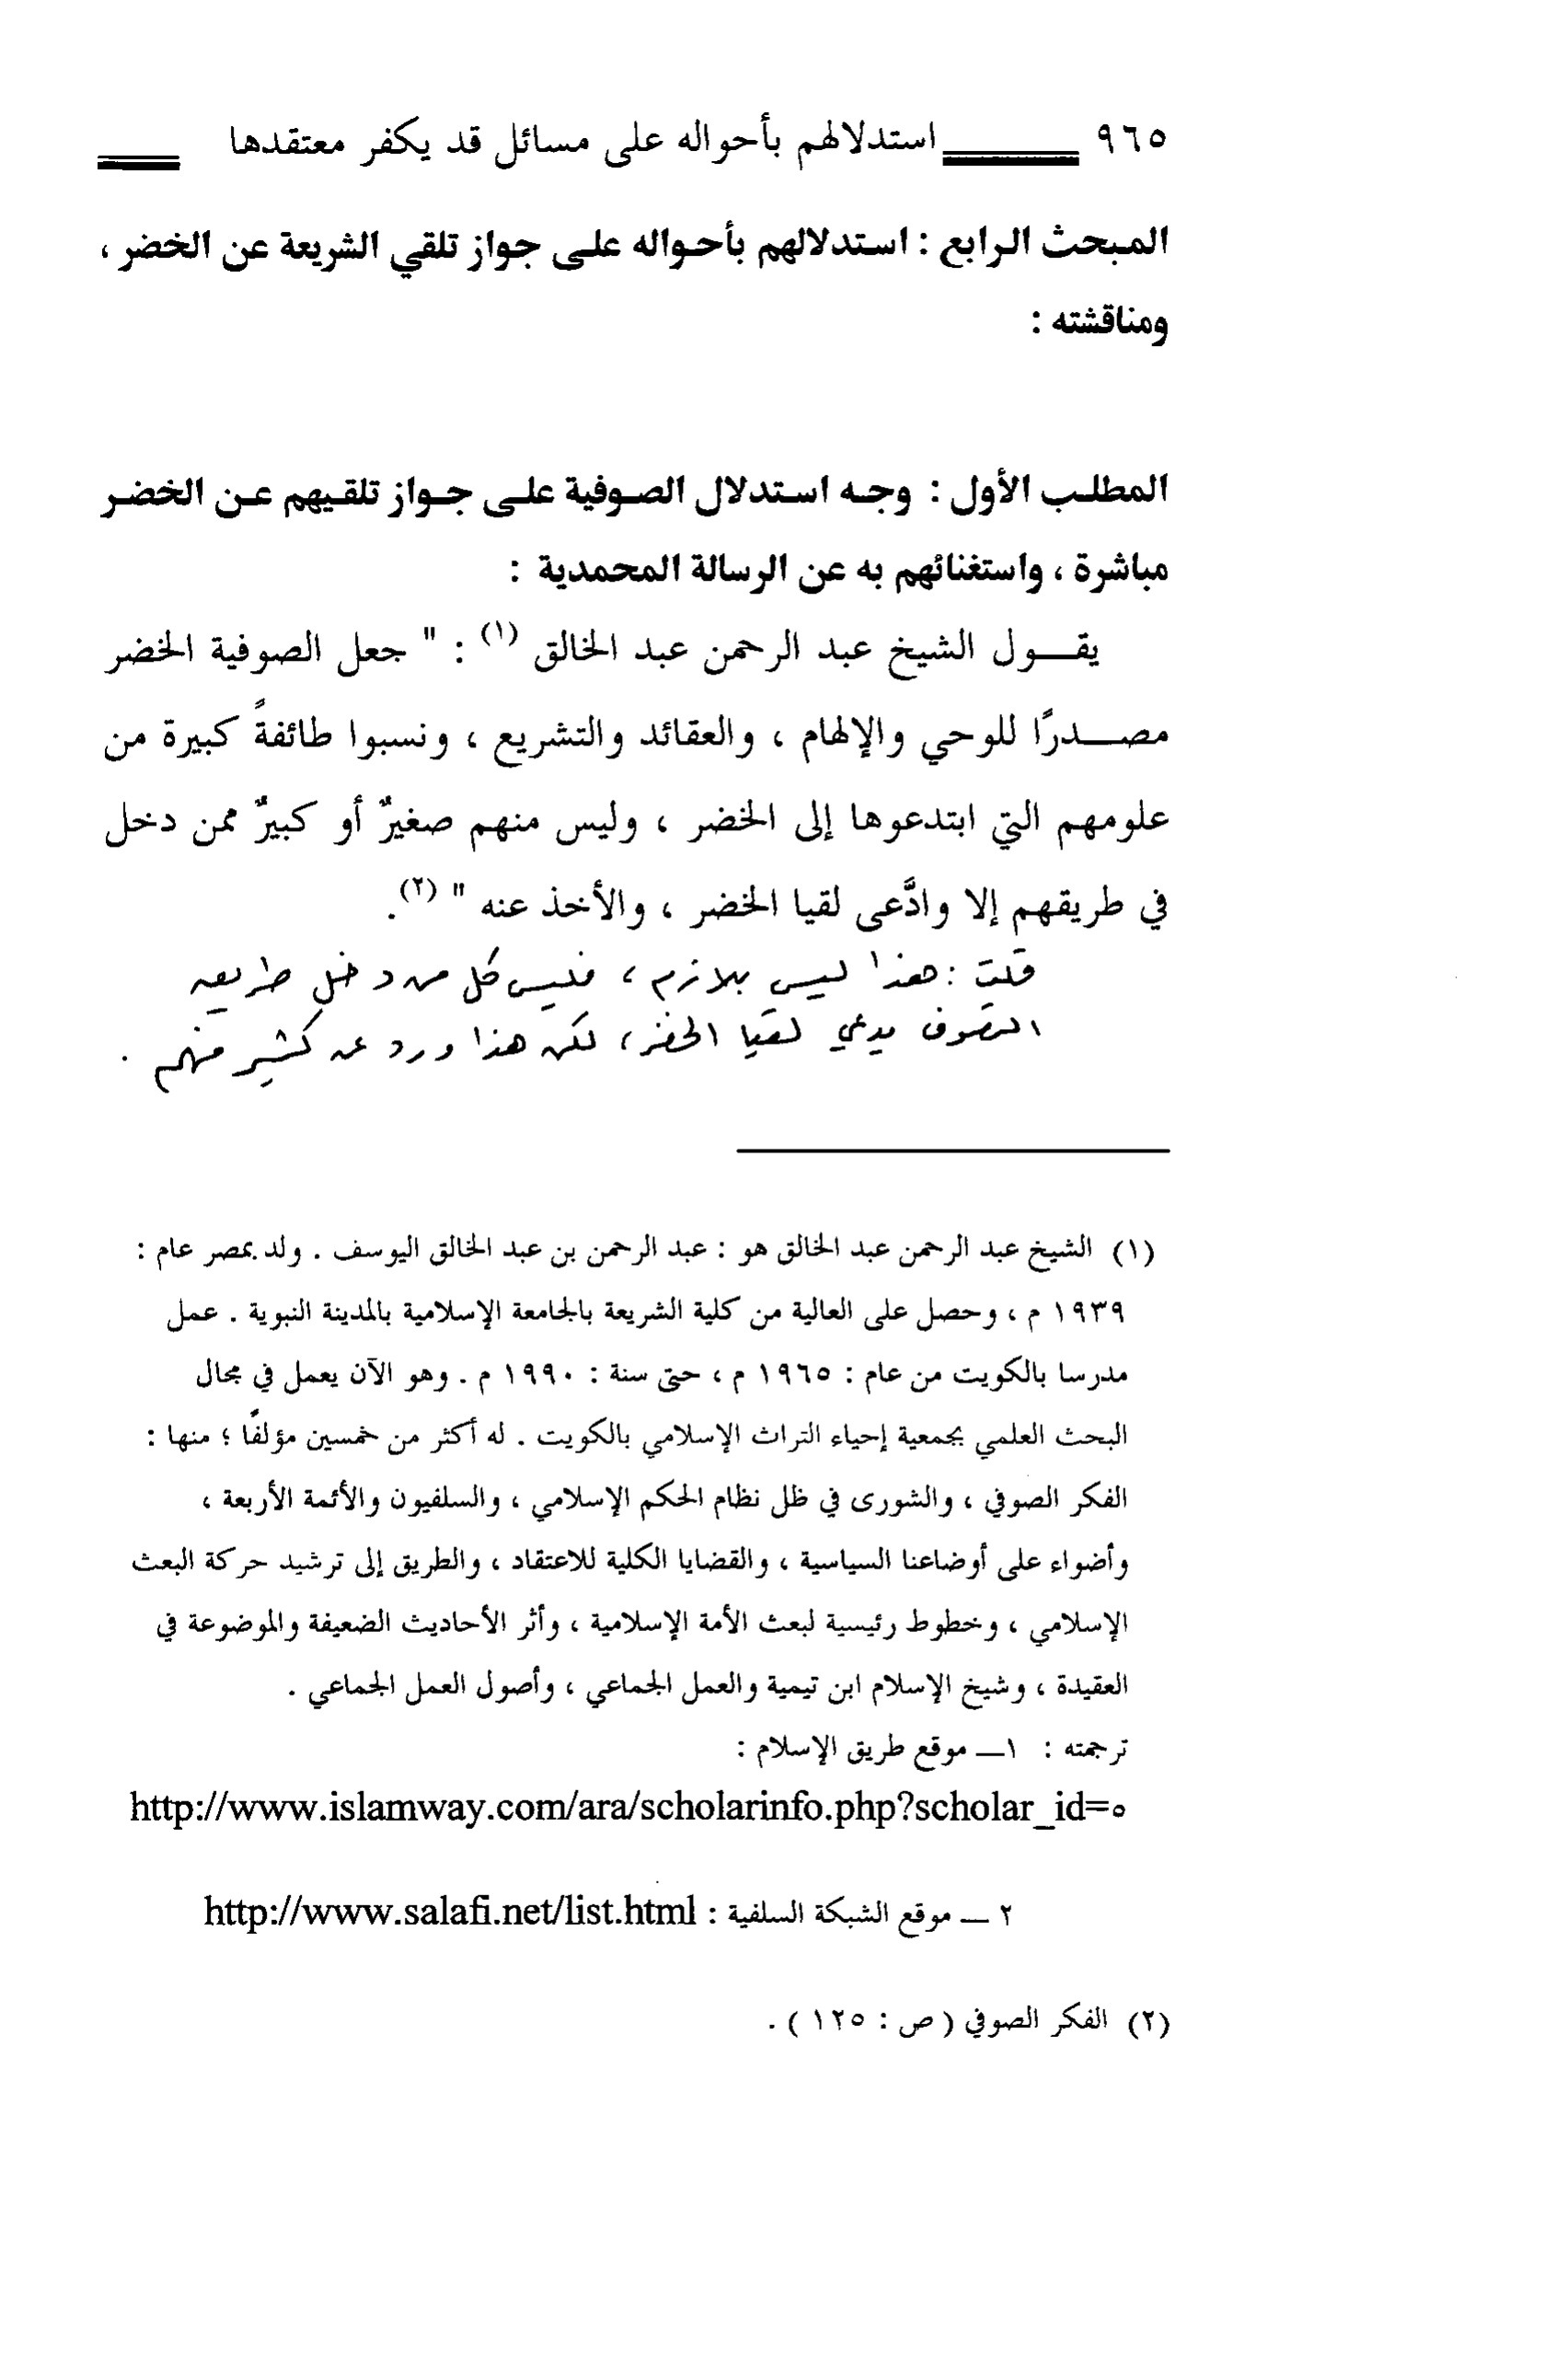 ٩٦٥ استدلالهم بأحواله على مسائل قد يكفر معتقدها
المبحث الرابع : استدلالهم بأحواله على جواز تلقي الشريعة عن الخضر ،
ومناقشته :
المطلب الأول : وجه استدلال الصوفية على جواز تلقيهم عن الخضر
مباشرة ، واستغنائهم به عن الرسالة المحمدية :
يقول الشيخ عبد الرحمن عبد الخالق (١) : " جعل الصوفية الخضر
مصدرًا للوحي والإلهام ، والعقائد والتشريع ، ونسبوا طائفةً كبيرة من
علومهم التي ابتدعوها إلى الخضر ، وليس منهم صغيرٌ أو كبيرٌ ممن دخل
في طريقهم إلا وادَّعى لقيا الخضر ، والأخذ عنه " (٢).
قلت : هذا ليس بلازم ، فليس كل من دخل طريقه
التصوف يدعي لقيا الخضر ، لكن هذا ورد عن كثير منهم .
(١) الشيخ عبد الرحمن عبد الخالق هو : عبد الرحمن بن عبد الخالق اليوسف . ولد بمصر عام :
١٩٣٩ م ، وحصل على العالية من كلية الشريعة بالجامعة الإسلامية بالمدينة النبوية . عمل
مدرسا بالكويت من عام : ١٩٦٥ م ، حتى سنة : ١٩٩٠ م . وهو الآن يعمل في مجال
البحث العلمي بجمعية إحياء التراث الإسلامي بالكويت . له أكثر من خمسين مؤلفًا ؛ منها :
الفكر الصوفي ، والشورى في ظل نظام الحكم الإسلامي ، والسلفيون والأئمة الأربعة ،
وأضواء على أوضاعنا السياسية ، والقضايا الكلية للاعتقاد ، والطريق إلى ترشيد حركة البعث
الإسلامي ، وخطوط رئيسية لبعث الأمة الإسلامية ، وأثر الأحاديث الضعيفة والموضوعة في
العقيدة ، وشيخ الإسلام ابن تيمية والعمل الجماعي ، وأصول العمل الجماعي .
ترجمته : ١ــ موقع طريق الإسلام :
http://www.islamway.com/ara/scholarinfo.php?scholar_id=٥
٢ ــ موقع الشبكة السلفية : http://www.salafi.net/list.html
(٢) الفكر الصوفي ( ص : ١٢٥ ) .